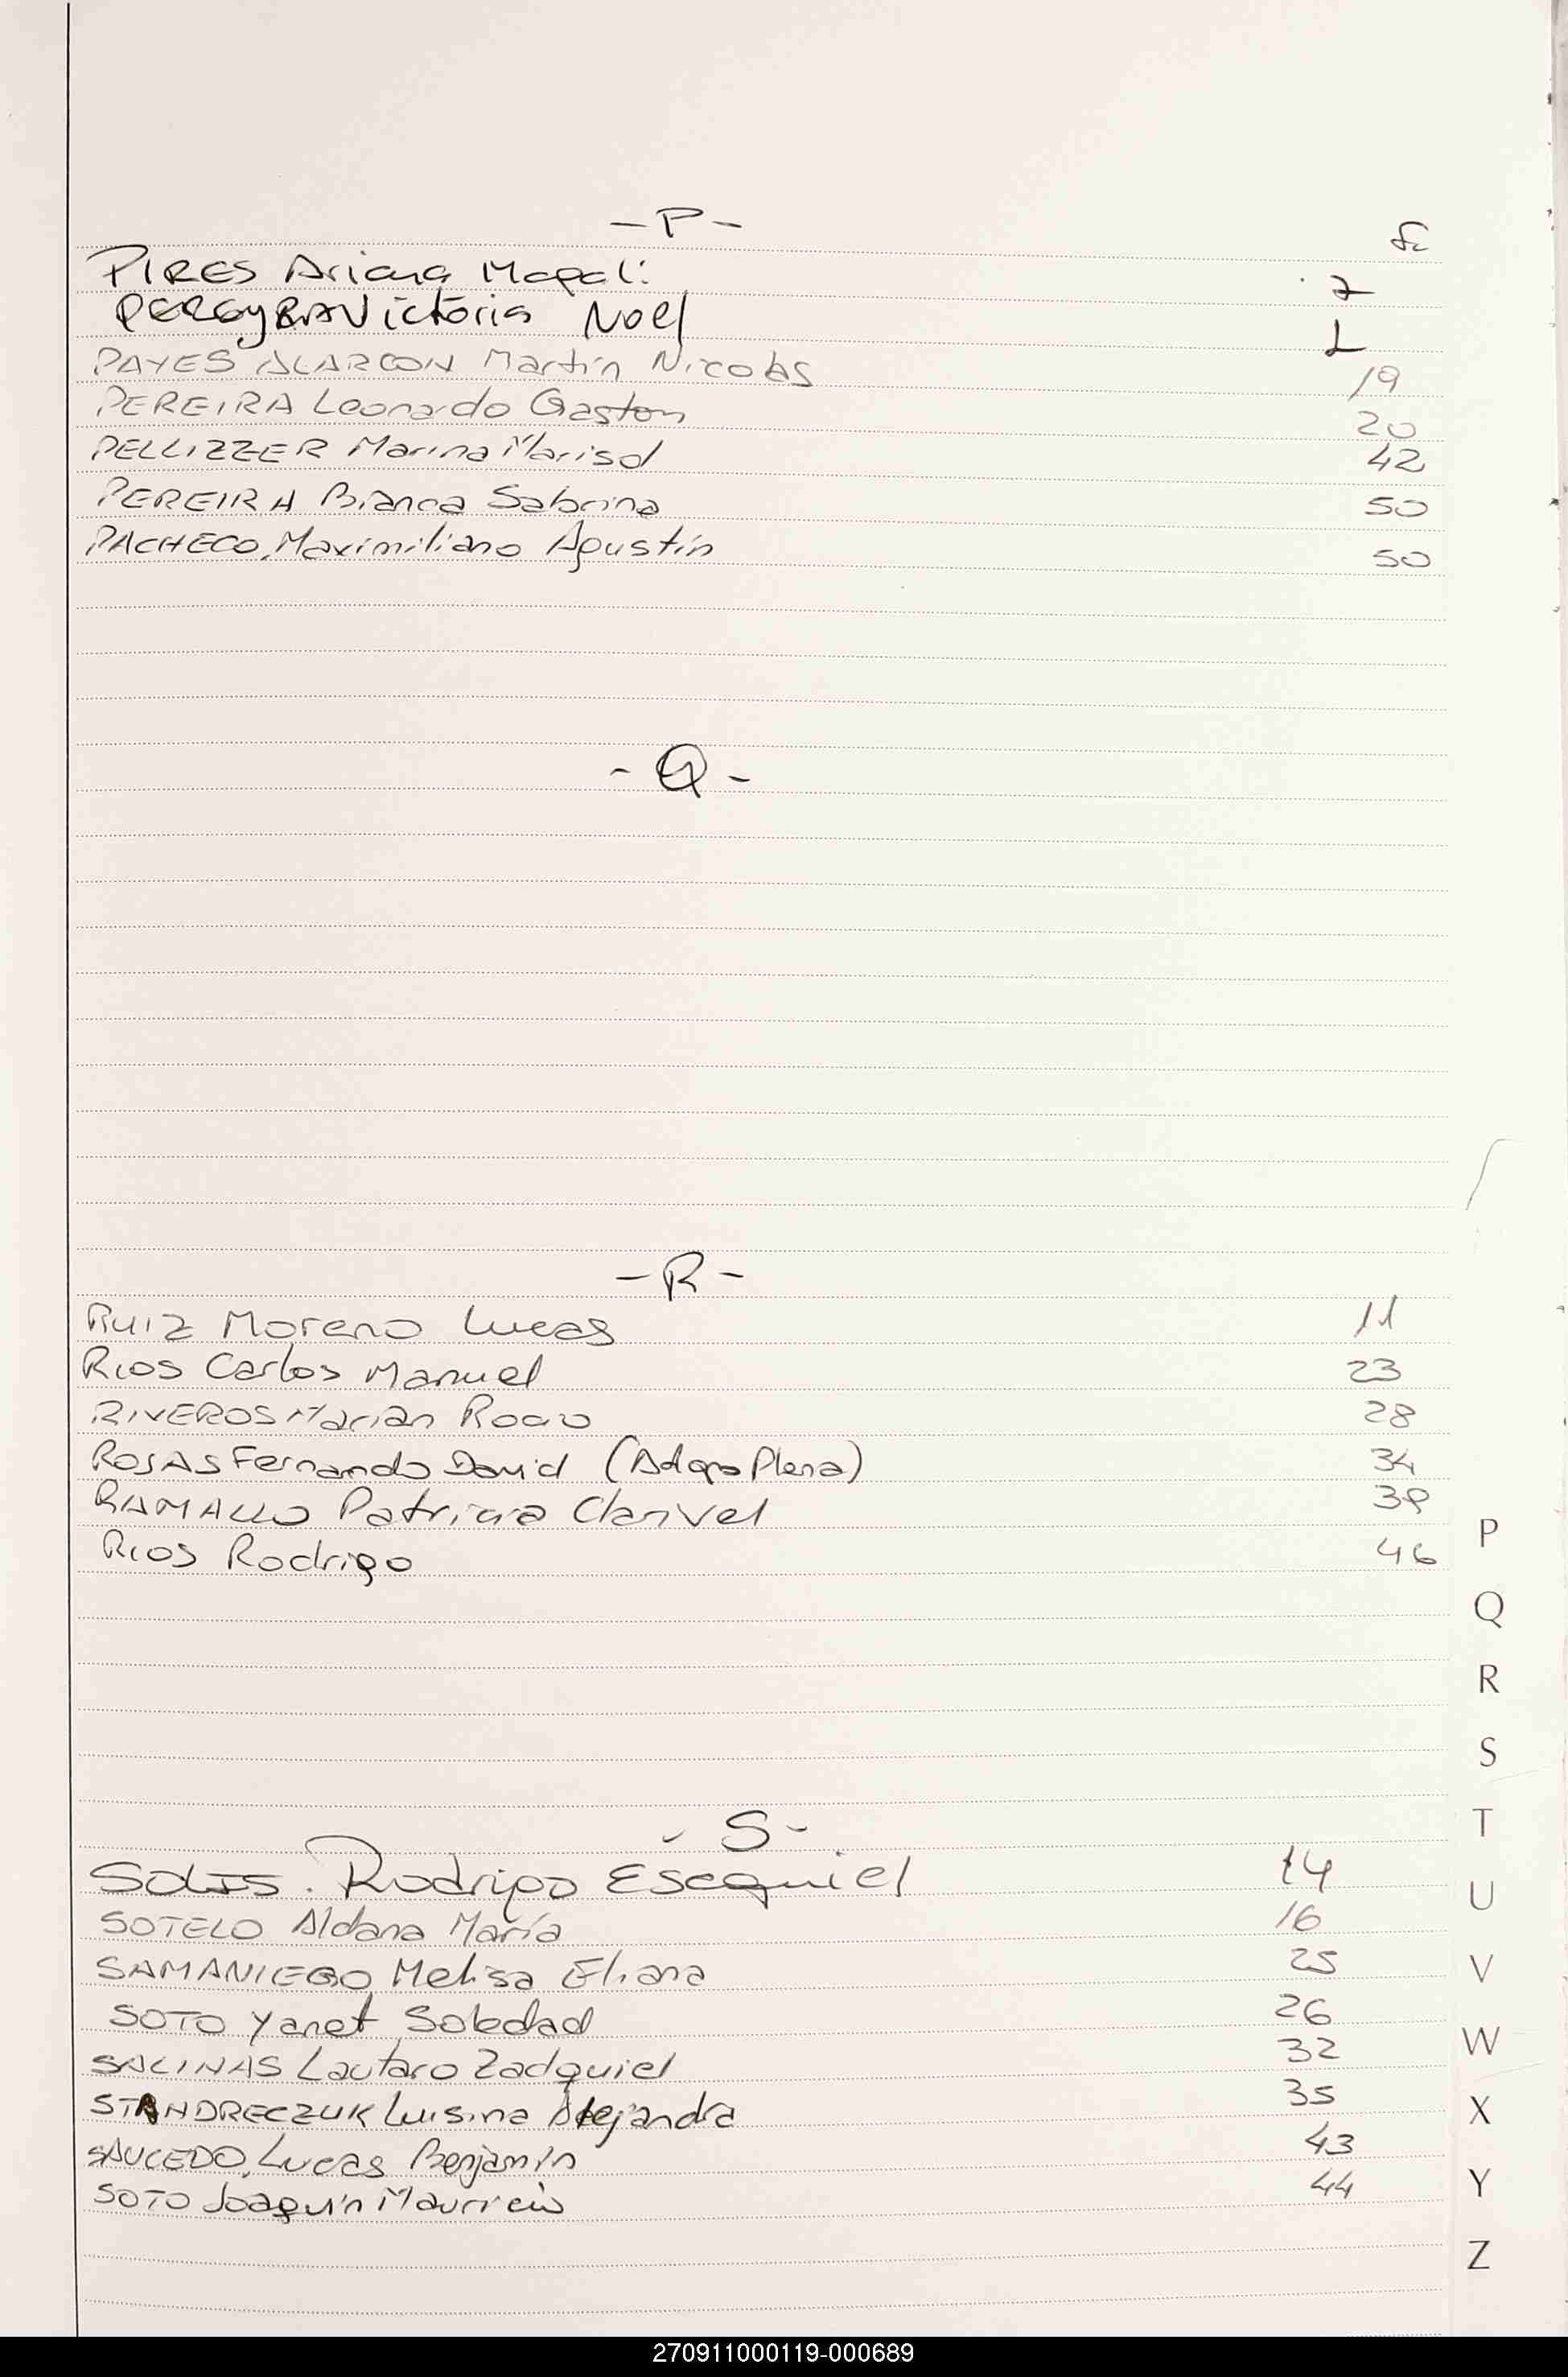 -P-
Fo
PIRES Ariana Magali 7
PEREYRA Victoria Noel 1
PAYES ALARCON Martín Nicolás 19
PEREIRA Leonardo Gaston 20
PELLIZZER Marina Marisol 42
PEREIRA Bianca Sabrina 50
PACHECO, Maximiliano Agustín 50
-Q-
-R-
RUIZ Moreno Lucas 11
RIOS Carlos Manuel 23
RIVEROS Marian Rocio 28
ROSAS Fernando David (Adopo Plena) 34
RAMALLO Patricia Clarivel 39
RIOS Rodrigo 46
-S-
SOLIS. Rodrigo Esequiel 14
SOTELO Aldana María 16
SAMANIEGO Melisa Eliana 25
SOTO Yanet Soledad 26
SALINAS Lautaro Zadquiel 32
STANDRECZUK Luisina Alejandra 35
SAUCEDO, Lucas Benjamín 43
SOTO Joaquín Mauricio 44
P
Q
R
S
T
U
V
W
X
Y
Z
270911000119-000689